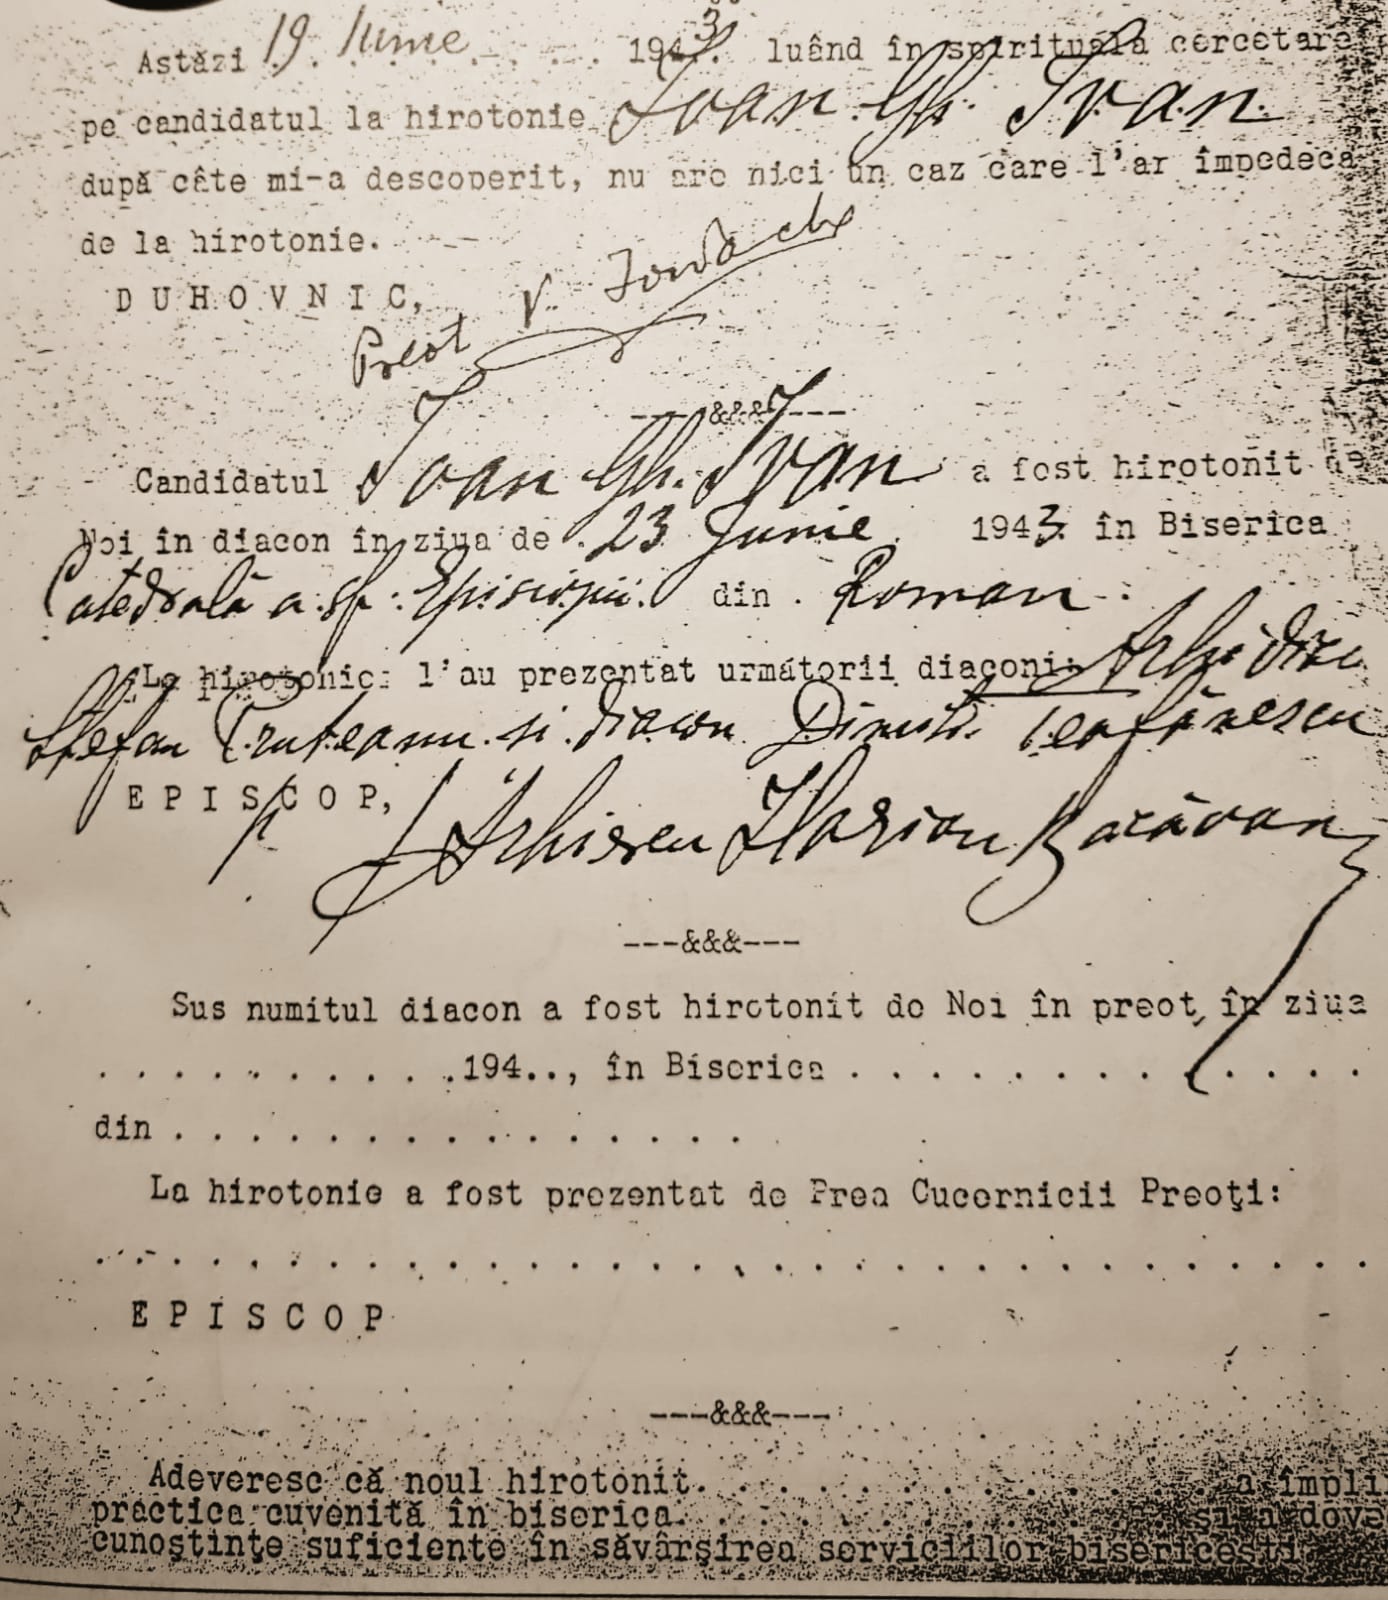 Astăzi 19 Iunie 1943. luând în spirituală cercetare
pe candidatul la hirotonie Ioan Gh. Ivan
după câte mi-a descoperit, nu are nici un caz care l'ar împedeca
de la hirotonie.
DUHOVNIC,
Preot V.
---&&&---
Candidatul Ioan Gh. Ivan a fost hirotonit de
Noi în diacon în ziua de 23 Junie 1943. în Biserica
Catedrală a Sf. Episcopii din Roman
La hirotonie l'au prezentat următorii diaconi:
Ștefan si diacon
EPISCOP,
Ilarion Bacăoan
---&&&---
Sus numitul diacon a fost hirotonit de Noi în preot, în ziua
. . . . . . . . . . 194.., în Biserica . . . . . . . . . . . . .
din . . . . . . . . . . . . . . .
La hirotonie a fost prezentat de Prea Cucernicii Preoţi:
. . . . . . . . . . . . . . . . . . . . . . . . . . . . . . . . .
EPISCOP
---&&&---
Adeveresc că noul hirotonit. . . . . . . . . . . . . . a împli
practica cuvenită în biserica. . . . . . . . . . . . . şi a dove
cunoştinţe suficiente în săvârşirea serviciilor bisericeşti.